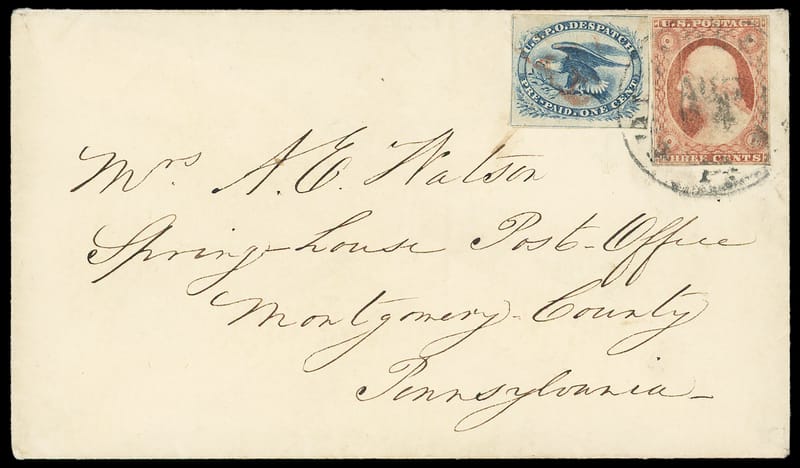 U.S.P.O. DESPATCH
PRE-PAID. ONE CENT.
U.S. POSTAGE
THREE CENTS
Mrs A. E. Watson
Spring-house Post-Office
Montgomery-County
Pennsylvania-